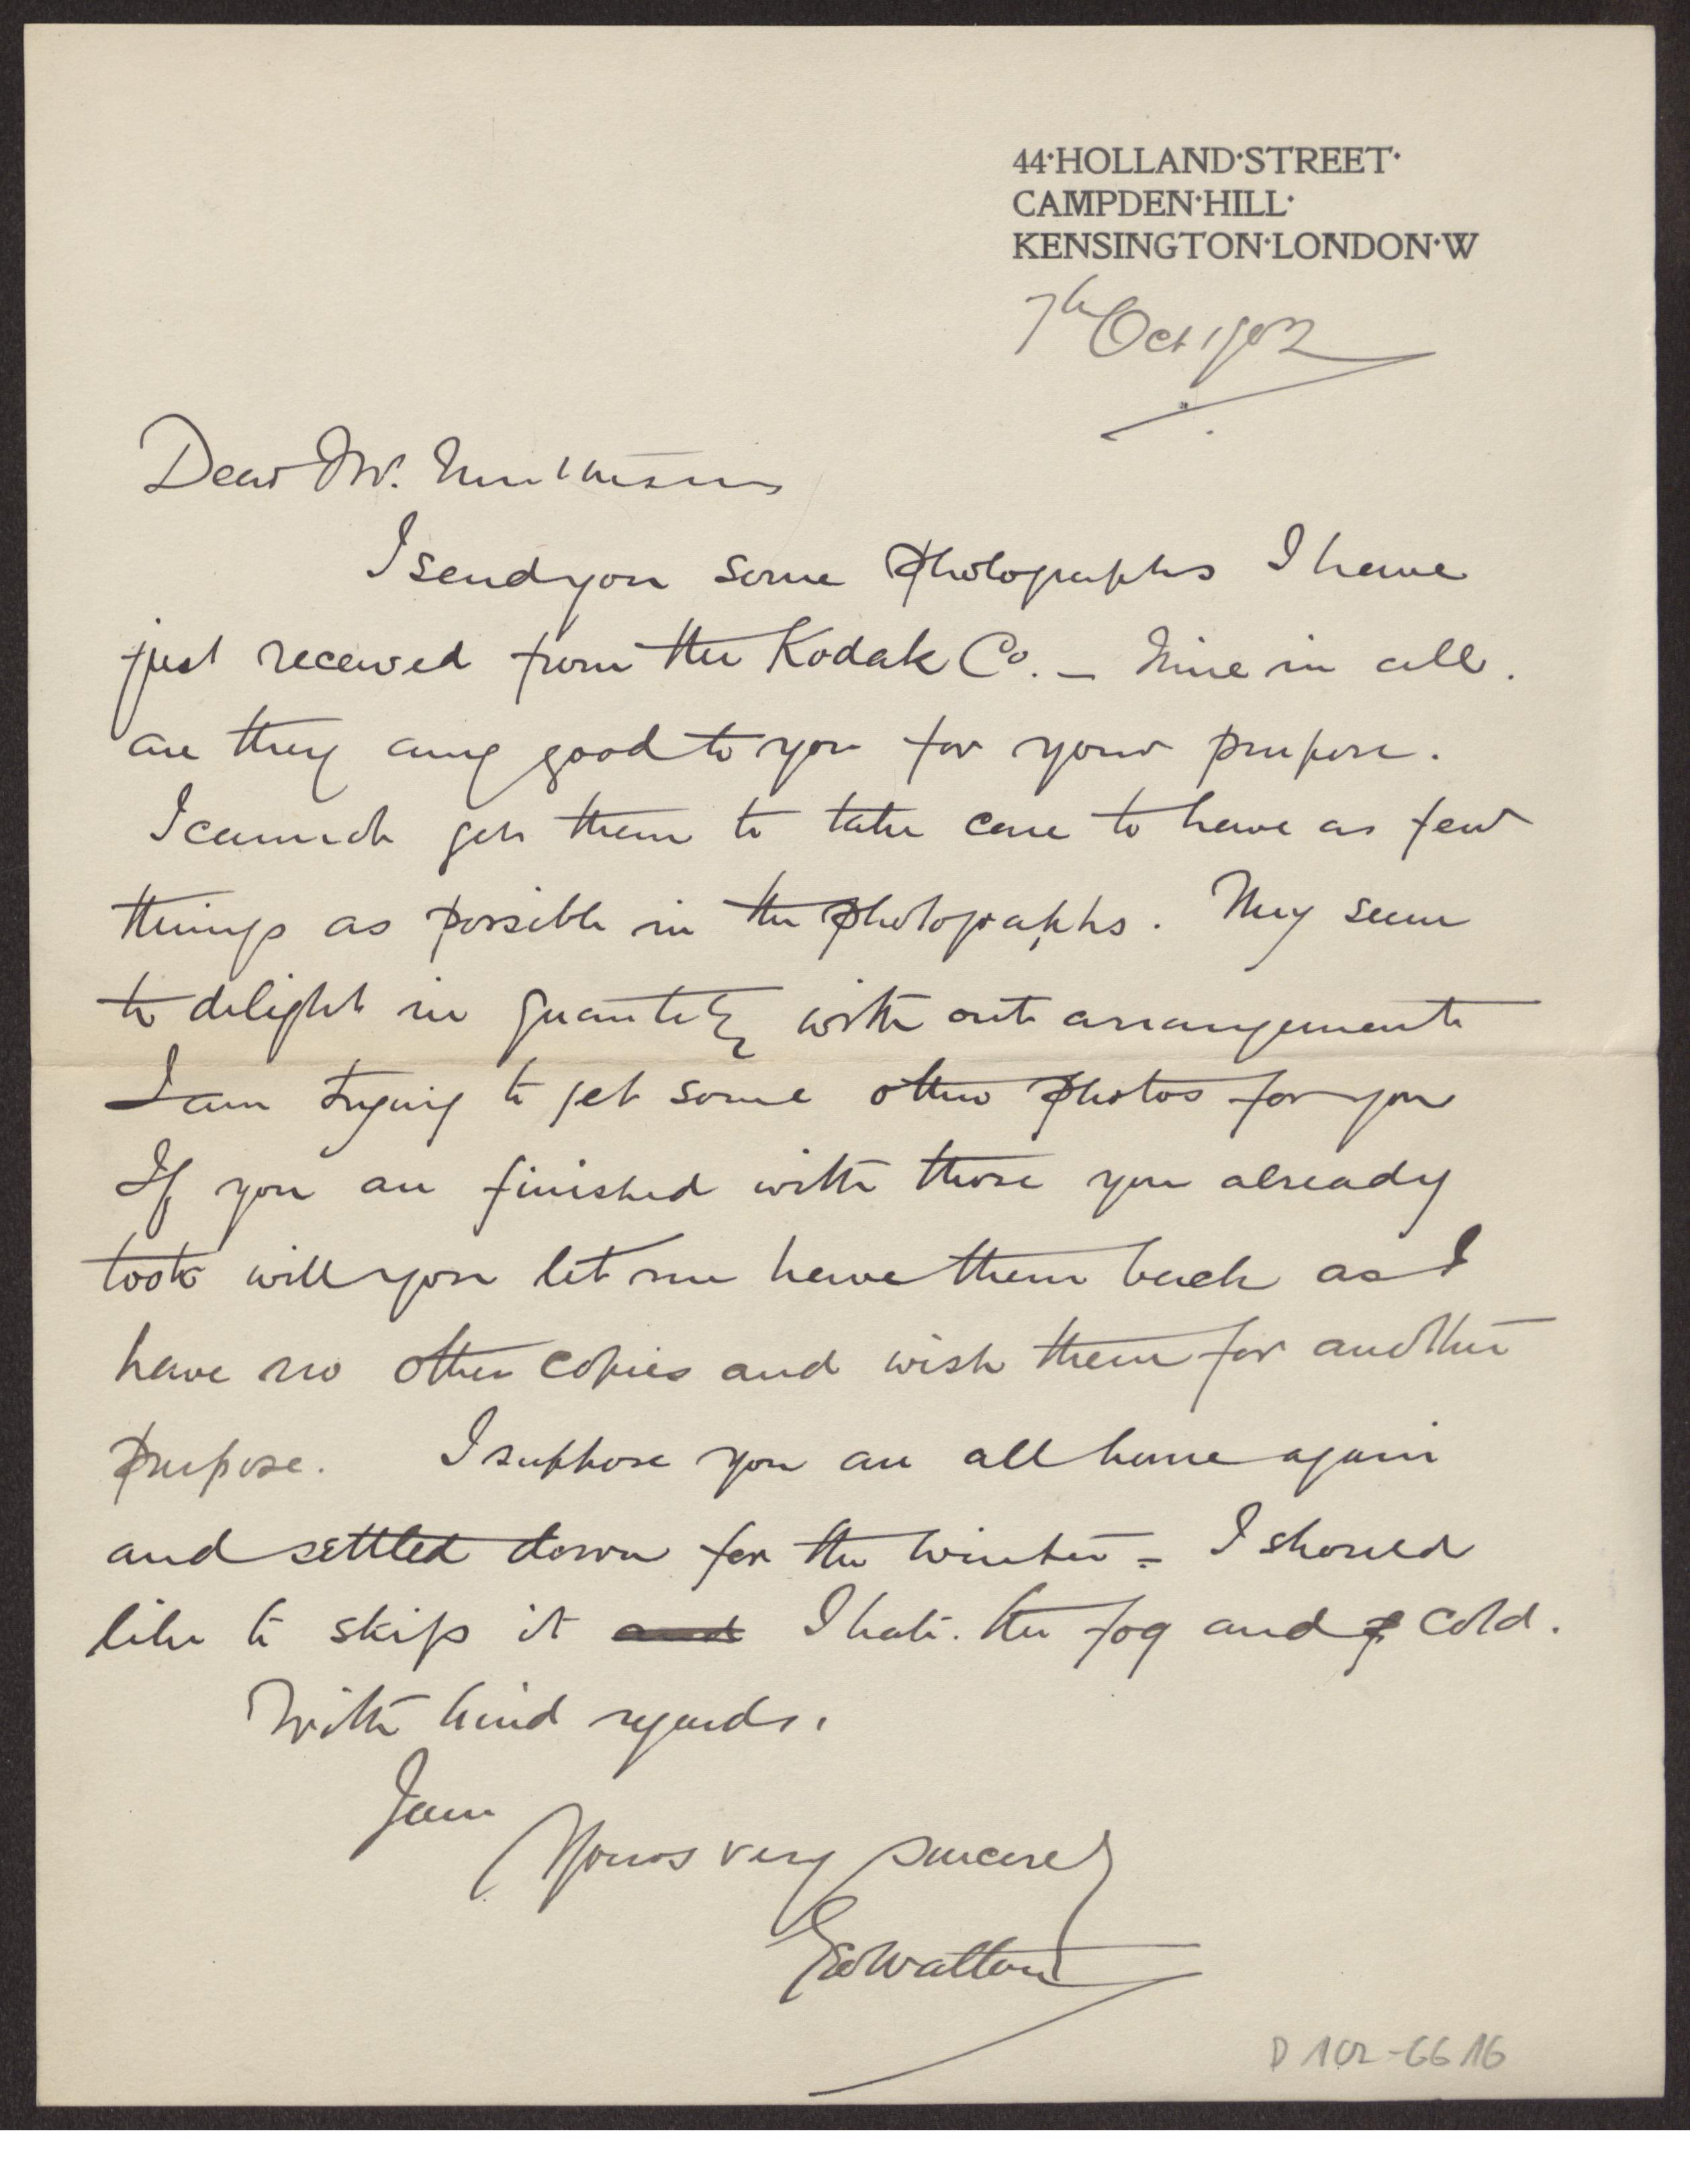 44·HOLLAND·STREET·
CAMPDEN·HILL·
KENSINGTON·LONDON·W
7th Oct 1902
Dear Mr. Muthesius
I send you some photographs I have
just received from the Kodak Co. – Nine in all.
are they any good to you for your purpose.
I cannot get them to take care to have as few
things as possible in the photographs. They seem
to delight in quantity with out arrangement
I am trying to get some other photos for you
If you are finished with those you already
took will you let me have them back as I
have no other copies and wish them for another
purpose. I suppose you are all home again
and settled down for the winter = I should
like to skip it and I hate the fog and cold.
With kind regards.
I am
Yours very sincerely
Geo Walton
D 102-6616